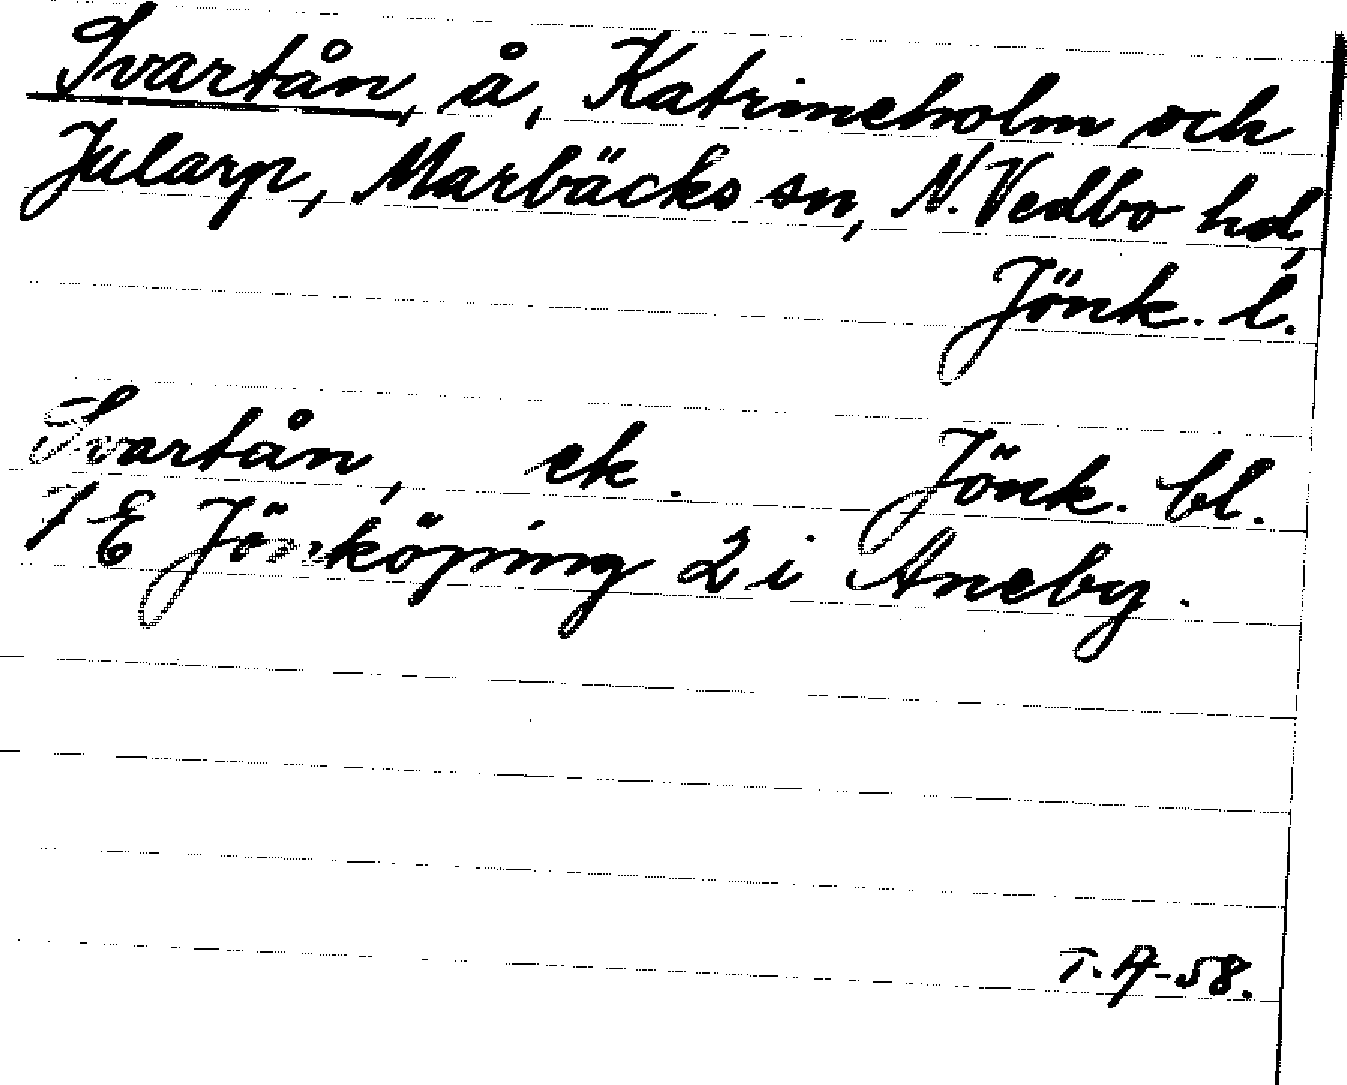 Svartån, å, Katrineholm och
Jularp, Marbäcks sn, N. Vedbo hd,
Jönk. l.
Svartån, ek. Jönk. bl.
7 E Jönköping 2 i Aneby.
T.A-58.